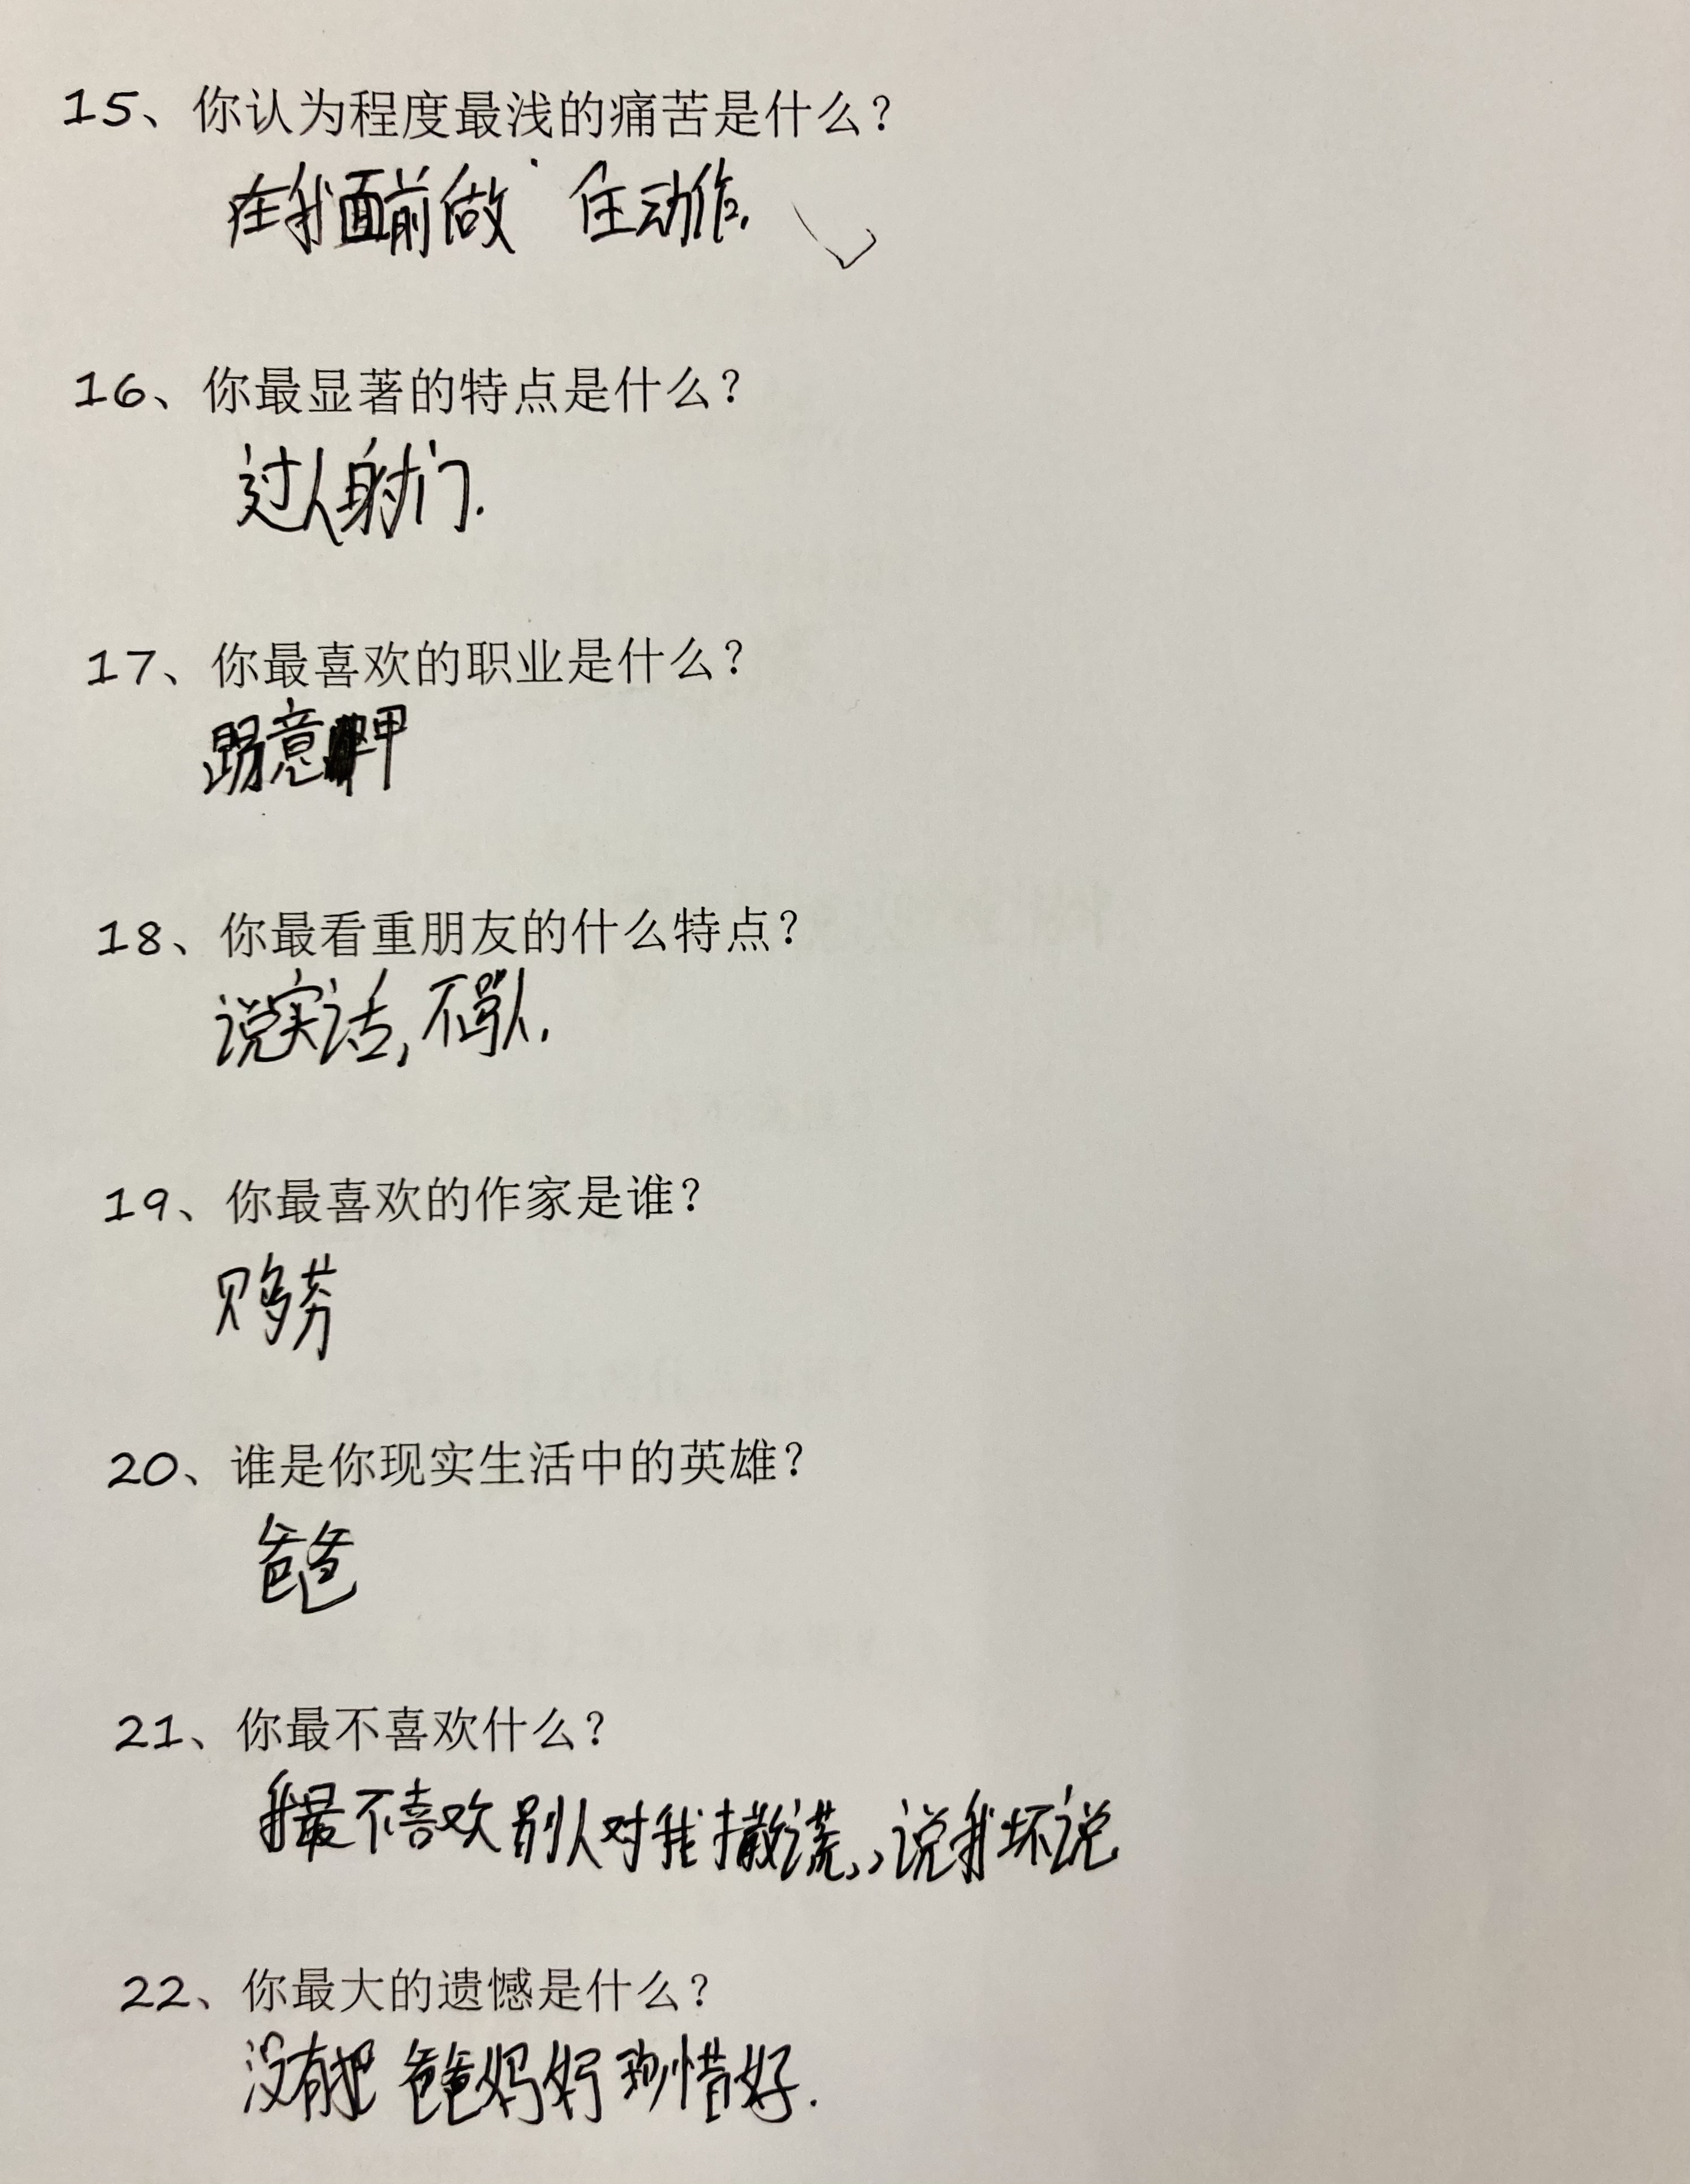 15、你认为程度最浅的痛苦是什么？
在我面前做 任动作.
16、你最显著的特点是什么？
过人射门.
17、你最喜欢的职业是什么？
踢意甲
18、你最看重朋友的什么特点？
说实话,不骂人.
19、你最喜欢的作家是谁？
贝多芬
20、谁是你现实生活中的英雄？
爸爸
21、你最不喜欢什么？
我最不喜欢别人对我撒谎,,说我坏说
22、你最大的遗憾是什么？
没有把爸爸妈妈珍惜好.